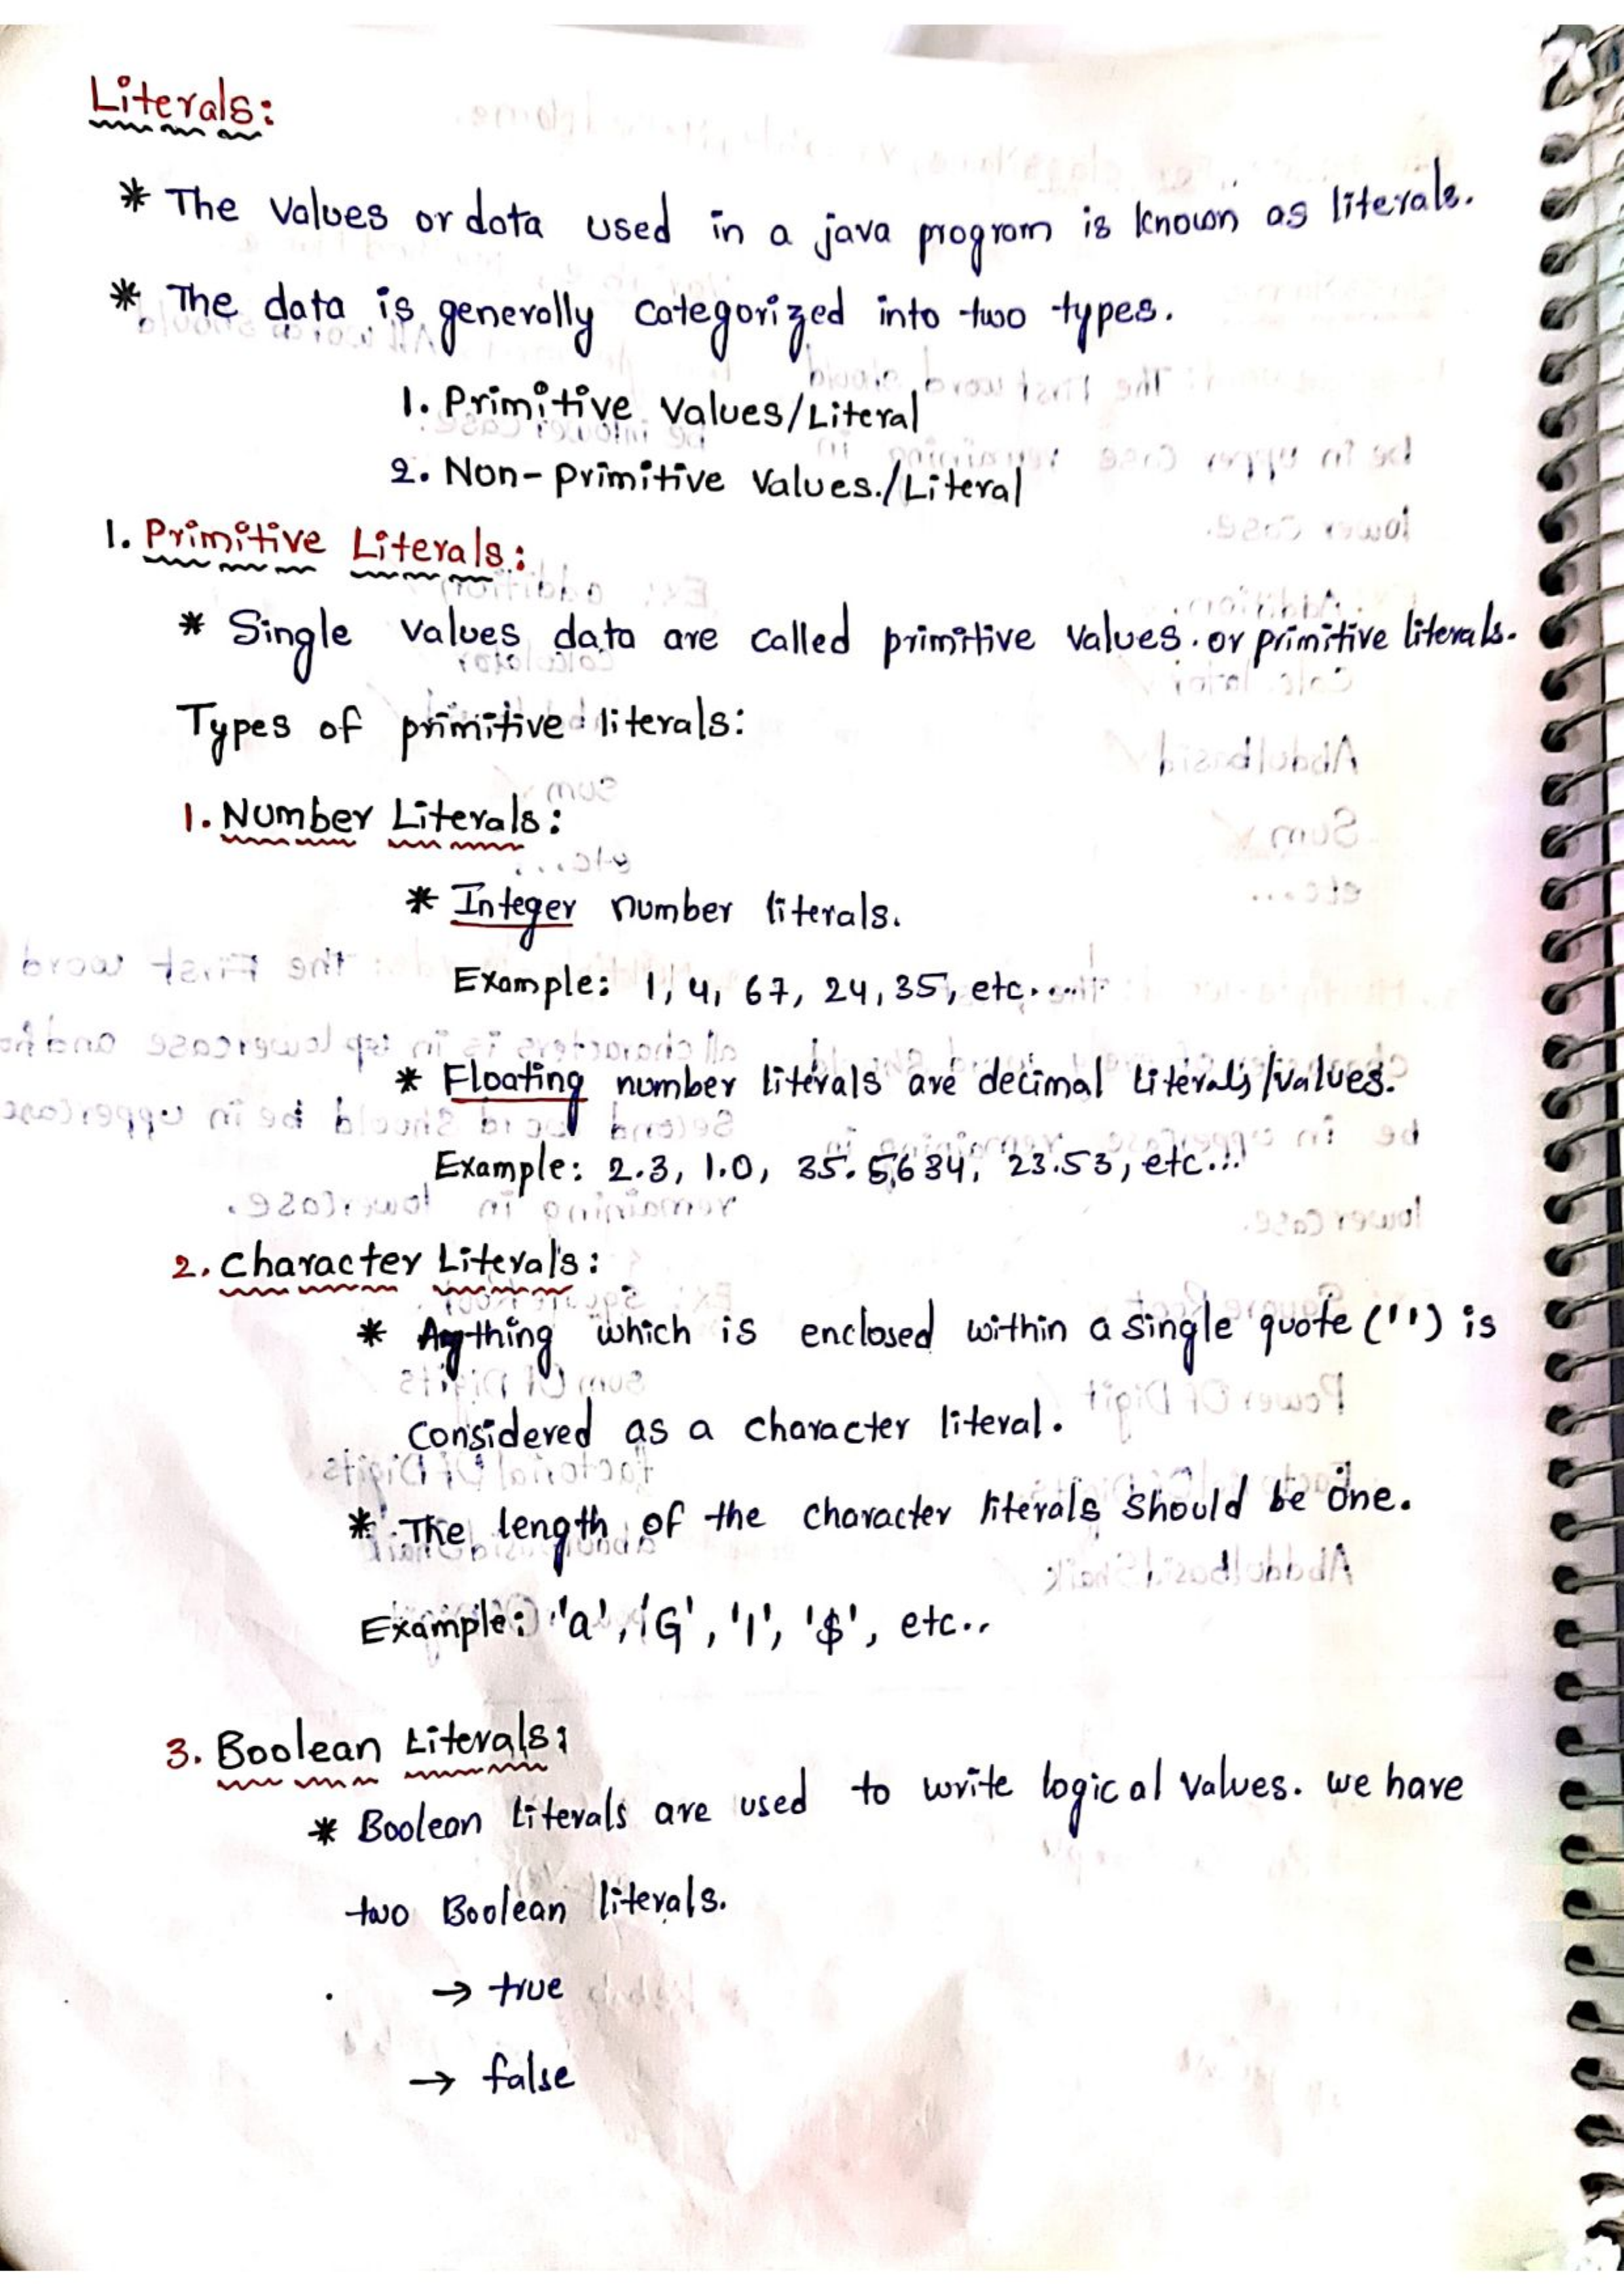 Literals:
* The values or data used in a java program is known as literals.
* The data is generally categorized into two types.
1. Primitive Values/Literal
2. Non-primitive Values./Literal
1. Primitive Literals:
* Single values data are called primitive values. or primitive literals.
Types of primitive literals:
1. Number Literals:
* Integer number literals.
Example: 1, 4, 67, 24, 35, etc.....
* Floating number literals are decimal literals/values.
Example: 2.3, 1.0, 35.5634, 23.53, etc...
2. Character Literals:
* Anything which is enclosed within a single quote ('') is
considered as a character literal.
* The length of the character literals should be one.
Example: 'a', 'G', '1', '$', etc..
3. Boolean Literals:
* Boolean literals are used to write logical values. we have
two Boolean literals.
→ true
→ false